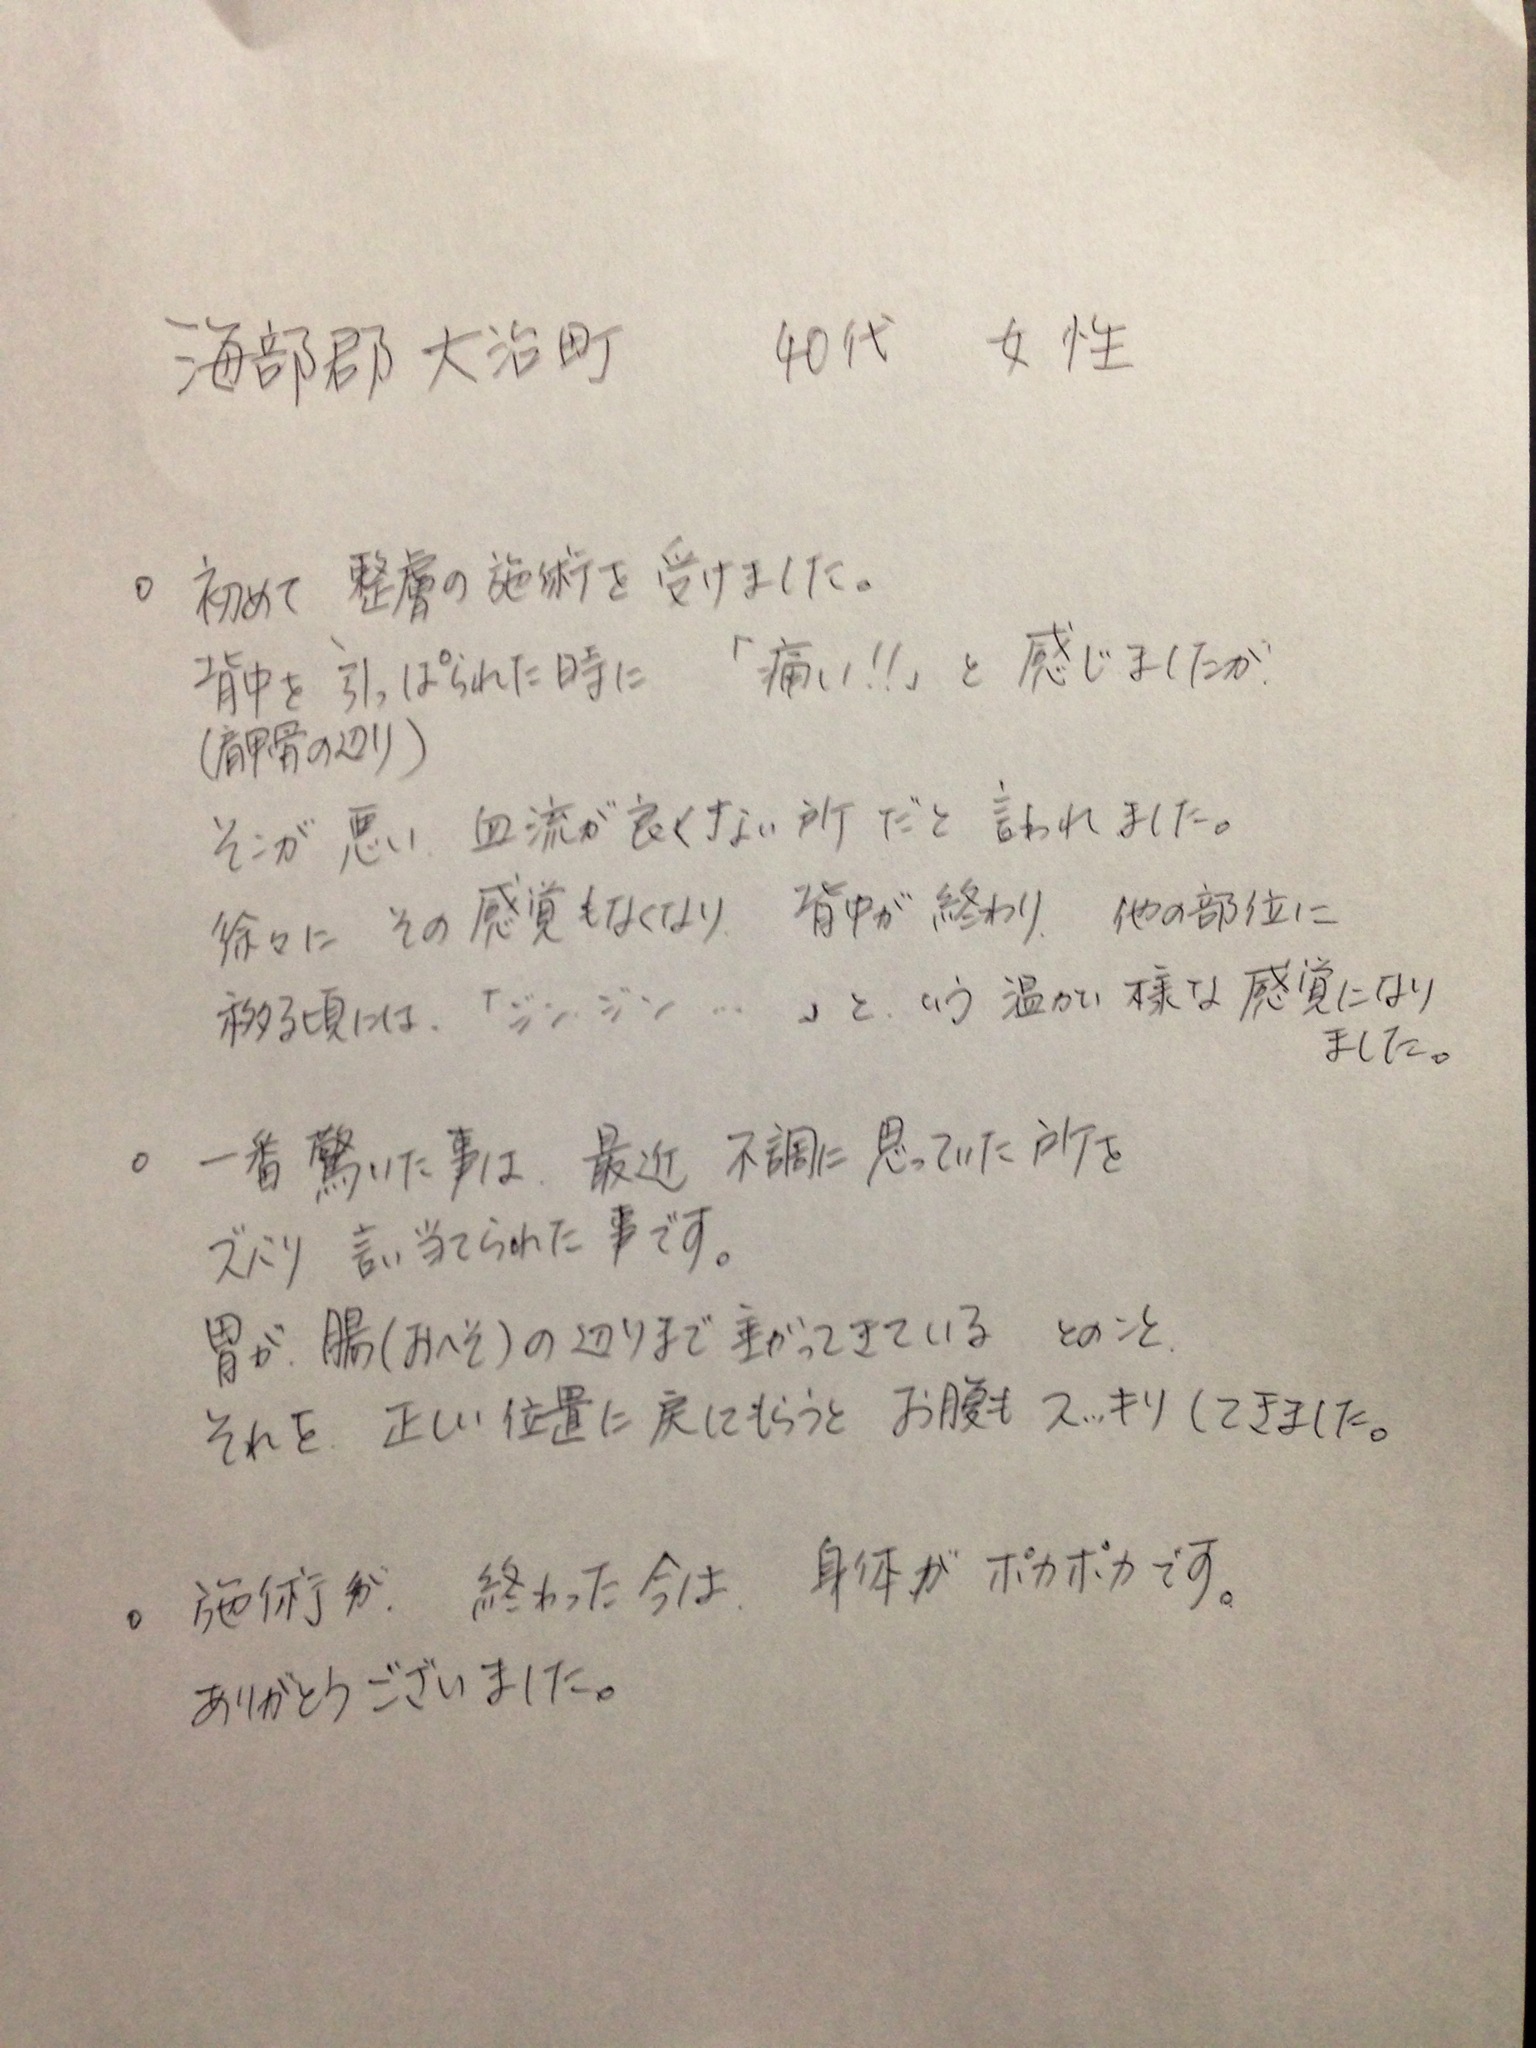 海部郡大治町　40代　女性
○ 初めて 整膚の施術を 受けました。
背中を 引っぱられた時に 「痛い!!」と 感じましたが、
(肩甲骨の辺り)
そこが 悪い、血流が良くない所 だと 言われました。
徐々に その感覚もなくなり、背中が 終わり、他の部位に
移る頃には、「ジン、ジン…　」と、いう 温かい 様な 感覚になり
ました。
○ 一番 驚いた事は、最近 不調に思っていた所を
ズバリ 言い当てられた事です。
胃が、腸(おへそ)の辺りまで垂がってきている とのこと、
それを、正しい位置に戻してもらうと お腹も スッキリしてきました。
○ 施術が、終わった今は、身体が ポカポカです。
ありがとうございました。